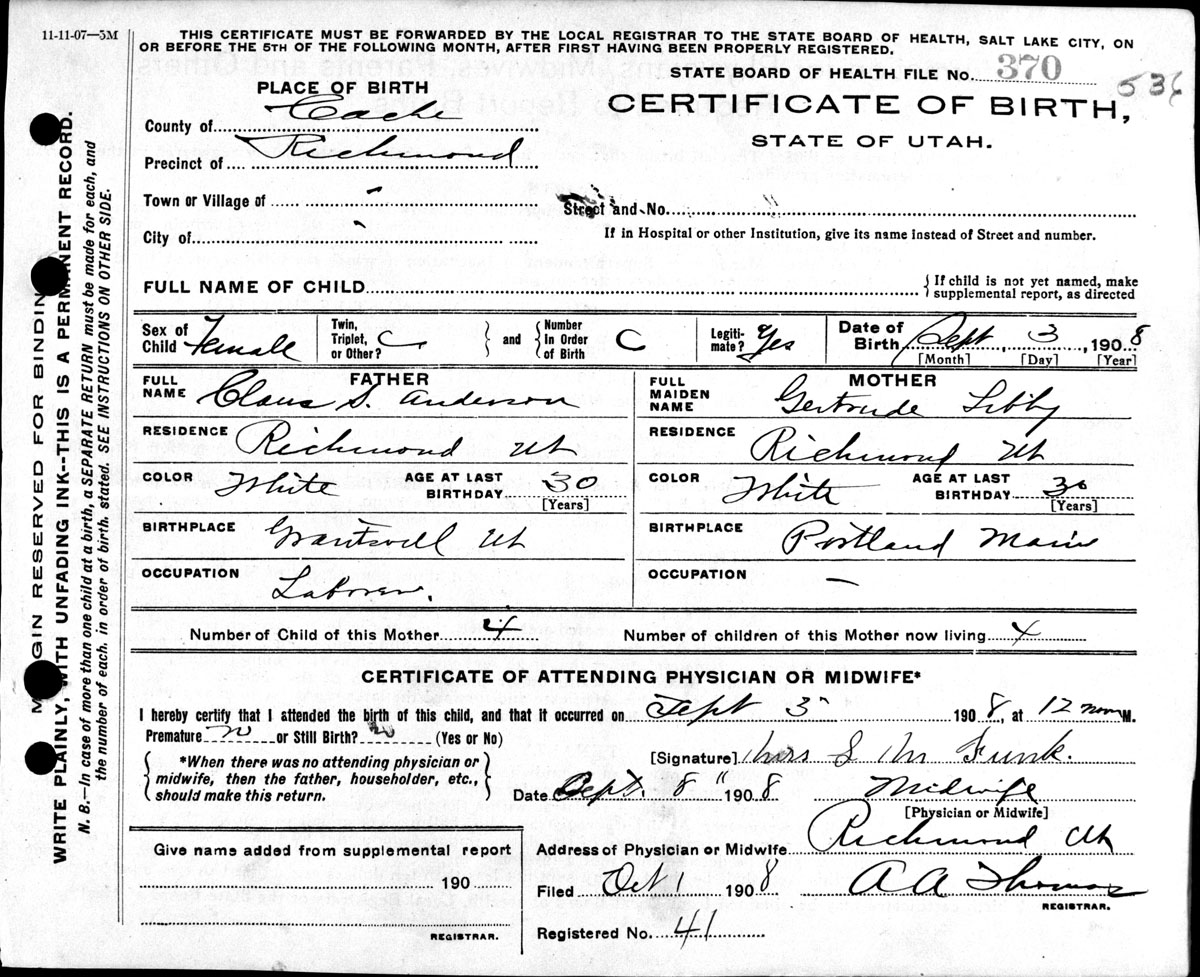 11-11-07—3M
THIS CERTIFICATE MUST BE FORWARDED BY THE LOCAL REGISTRAR TO THE STATE BOARD OF HEALTH, SALT LAKE CITY, ON
OR BEFORE THE 5TH OF THE FOLLOWING MONTH, AFTER FIRST HAVING BEEN PROPERLY REGISTERED.
STATE BOARD OF HEALTH FILE No. 370
536
PLACE OF BIRTH
CERTIFICATE OF BIRTH,
STATE OF UTAH.
County of Cache
Precinct of Richmond
Town or Village of -
Street and No. "
City of -
If in Hospital or other Institution, give its name instead of Street and number.
FULL NAME OF CHILD
If child is not yet named, make
supplemental report, as directed
Sex of Child Female
Twin, Triplet, or Other? C
and
Number In Order of Birth C
Legiti-mate? Yes
Date of Birth Sept 3, 1908
[Month] [Day] [Year]
FATHER
FULL NAME Claus S. Anderson
MOTHER
FULL MAIDEN NAME Gertrude Libby
RESIDENCE Richmond Ut
RESIDENCE Richmond Ut
COLOR White AGE AT LAST BIRTHDAY 30
[Years]
COLOR White AGE AT LAST BIRTHDAY 30
[Years]
BIRTHPLACE Grantsvell Ut
BIRTHPLACE Portland Maine
OCCUPATION Laborer.
OCCUPATION —
Number of Child of this Mother 4
Number of children of this Mother now living 4
CERTIFICATE OF ATTENDING PHYSICIAN OR MIDWIFE*
I hereby certify that I attended the birth of this child, and that it occurred on Sept 3 1908, at 12 noon M.
Premature no or Still Birth? no (Yes or No)
*When there was no attending physician or
midwife, then the father, householder, etc.,
should make this return.
[Signature] Mrs S M Funk.
Date Sept. 8 " 1908 Midwife
[Physician or Midwife]
Address of Physician or Midwife Richmond Ut
Filed Oct 1 1908 A A Thomas
REGISTRAR.
Registered No. 41
Give name added from supplemental report
190
REGISTRAR.
MARGIN RESERVED FOR BINDING
WRITE PLAINLY, WITH UNFADING INK--THIS IS A PERMANENT RECORD.
N. B.—In case of more than one child at a birth, a SEPARATE RETURN must be made for each, and
the number of each, in order of birth, stated. SEE INSTRUCTIONS ON OTHER SIDE.